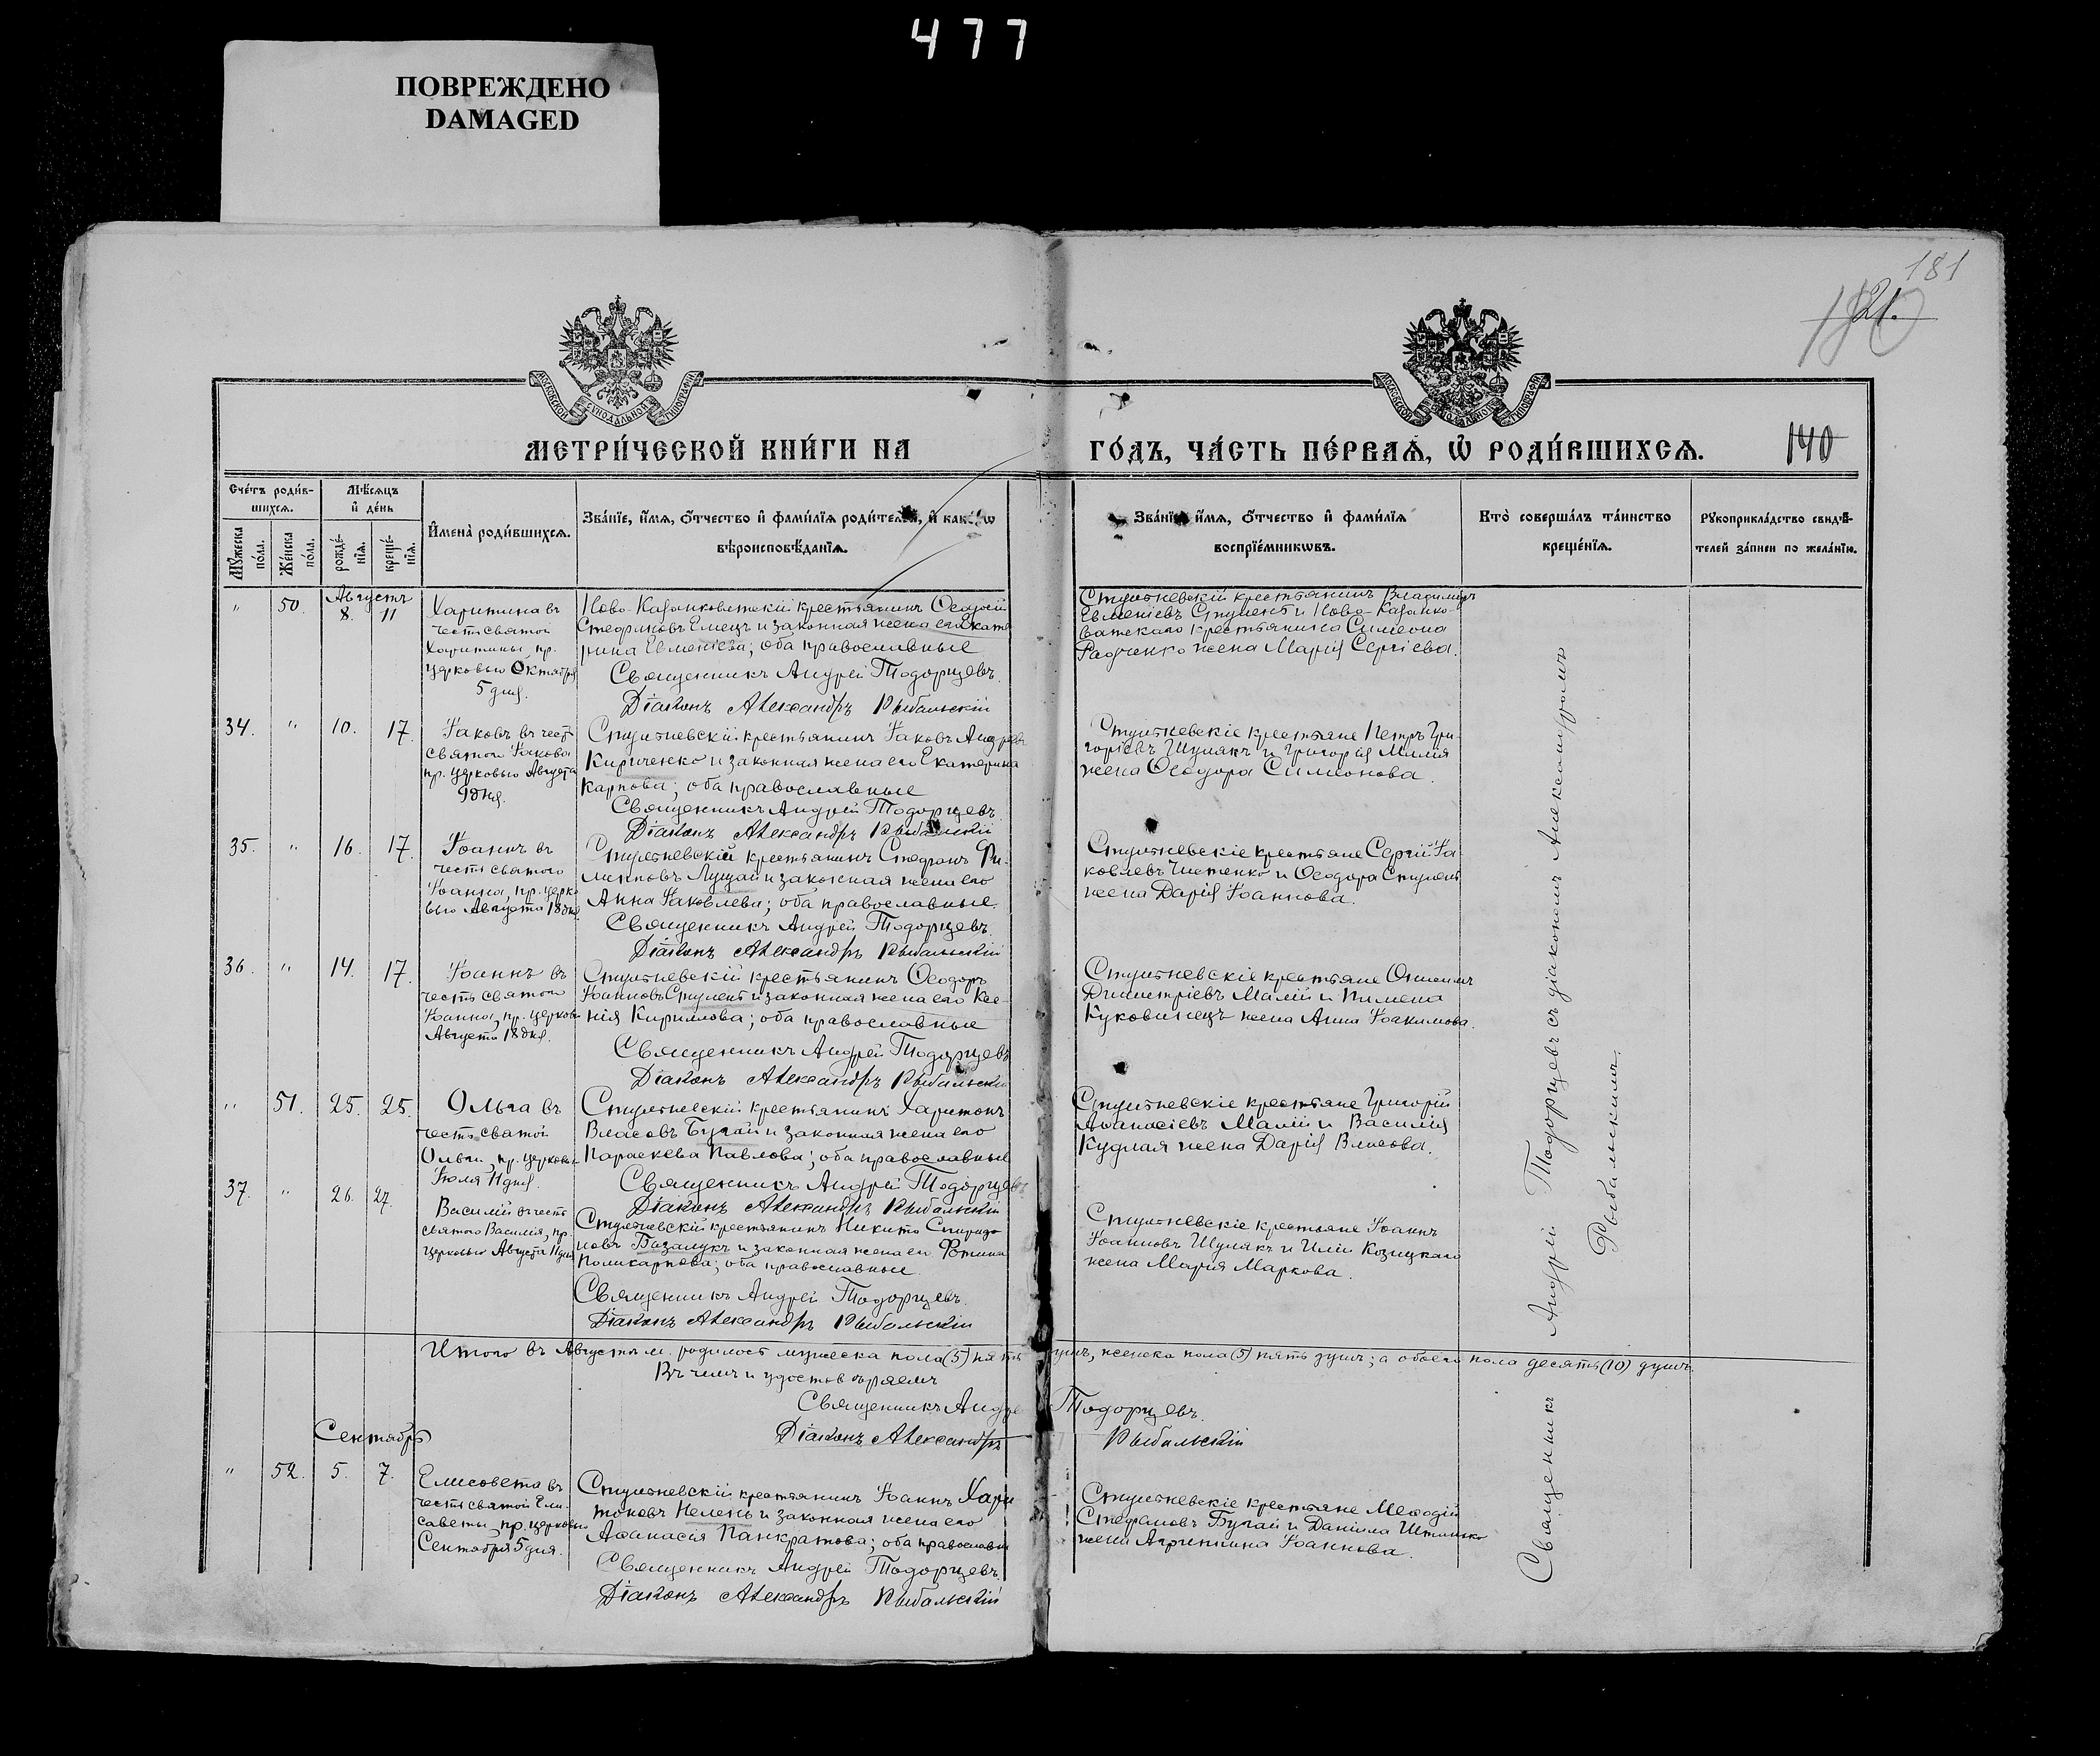 477
ПОВРЕЖДЕНО
DAMAGED
181
121.
140
МОСКОВСКОЙ СѴНОДАЛЬНОЙ ТИПОГРАФІИ
МОСКОВСКОЙ СѴНОДАЛЬНОЙ ТИПОГРАФІИ
МЕТРИ́ЧЕСКОЙ КНИ́ГИ НА
ГО́ДЪ, ЧА́СТЬ ПЕ́РВАѦ, Ѡ҆ РОДИ́ВШИХСѦ.
Сче́тъ роди́в-
шихсѧ.
Мѣ́сѧцъ
и҆ де́нь
Мꙋ́жеска
по́ла.
Же́нска
по́ла.
рожде́-
нїѧ.
креще́-
нїѧ.
И҆мена̀ роди́вшихсѧ.
Зва́нїе, и҆́мѧ, ѻ҆́тчество и҆ фами́лїѧ роди́телей, и҆ како́гѡ
вѣроисповѣ́данїѧ.
Зва́нїе, и҆́мѧ, ѻ҆́тчество и҆ фами́лїѧ
воспрїе́мникѡвъ.
Кто̀ соверша́лъ та́инство
креще́нїѧ.
Рꙋкоприкла́дство свидѣ́-
телей за́писи по жела́нїю.
Августъ
" 50. 8. 11
Харитина въ
честь святой
Харитины, пр.
церковью Октября
5 дня.
Ново-Казанковатскій крестьянинъ Ѳеодосій
Стефановъ Емецъ и законная жена его Екате
рина Евменіева; оба православные
Священникъ Андрей Тодорцевъ.
Діаконъ Александръ Рыбальскій
крестьянинъ Владимиръ
Евменіевъ и Ново-Казанко-
ватскаго крестьянина Симеона
Радченко жена Марія Сергіева.
34. " 10. 17.
Іаковъ въ честь
святого Іакова
пр. церковью Августа
9 дня.
крестьянинъ Іаковъ Андреевъ
Кириченко и законная жена его Екатерина
Карпова; оба православные
Священникъ Андрей Тодорцевъ.
Діаконъ Александръ Рыбальскій
крестьяне Петръ Гри-
горіевъ Шулякъ и Григорія Милія
жена Ѳеодора Симеонова.
35. " 16. 17.
Іоаннъ въ
честь святого
Іоанна, пр. церко
вью Августа 18 дня
крестьянинъ Стефанъ Фи-
липповъ Лущай и законная жена его
Анна Іаковлева; оба православные.
Священникъ Андрей Тодорцевъ.
Діаконъ Александръ Рыбальскій
крестьяне Сергій Іа-
ковлевъ и Ѳеодора
жена Дарія Іоаннова.
36. " 14. 17.
Іоаннъ въ
честь святого
Іоанна, пр. церков
Августа 18 дня.
крестьянинъ Ѳеодоръ
Іоанновъ и законная жена его Ксе-
нія Кириллова; оба православные
Священникъ Андрей Тодорцевъ
Діаконъ Александръ Рыбальскій
крестьяне
Димитріевъ Малій и Пимена
Куковинецъ жена Анна Іоакимова.
" 51. 25. 25.
Ольга въ
честь святой
Ольги, пр. церковью
Іюля 11 дня.
крестьянинъ Харитонъ
Власовъ Бугай и законная жена его
Параскева Павлова; оба православные
Священникъ Андрей Тодорцевъ
Діаконъ Александръ Рыбальскій
крестьяне Григорій
Аѳанасіевъ Малій и Василія
Кудлая жена Дарія Власова.
37. " 26. 27.
Василій въ честь
святого Василія, пр.
церковью Августа 11 дня
крестьянинъ Никита Спиридо
новъ Базалукъ и законная жена его Фотина
Поликарпова; оба православные.
Священникъ Андрей Тодорцевъ.
Діаконъ Александръ Рыбальскій
крестьяне Іоаннъ
Іоанновъ Шулякъ и Иліи Козицкаго
жена Марія Маркова.
Итого въ Августѣ м. родилось мужеска пола (5) пять душъ, женска пола (5) пять душъ; а обоего пола десять (10) душъ.
Въ чемъ и удостовѣряемъ
Священникъ Андрей Тодорцевъ.
Діаконъ Александръ Рыбальскій
Сентябрь
" 52. 5. 7.
Елисавета въ
честь святой Ели-
саветы, пр. церковью
Сентября 5 дня.
крестьянинъ Іоаннъ Хари
тоновъ Нелень и законная жена его
Аѳанасія Панкратова; оба православные
Священникъ Андрей Тодорцевъ.
Діаконъ Александръ Рыбальскій
крестьяне Меѳодій
Стефановъ Бугай и Даніила
жена Агриппина Іоаннова.
Священникъ Андрей Тодорцевъ съ діакономъ Александромъ
Рыбальскимъ.